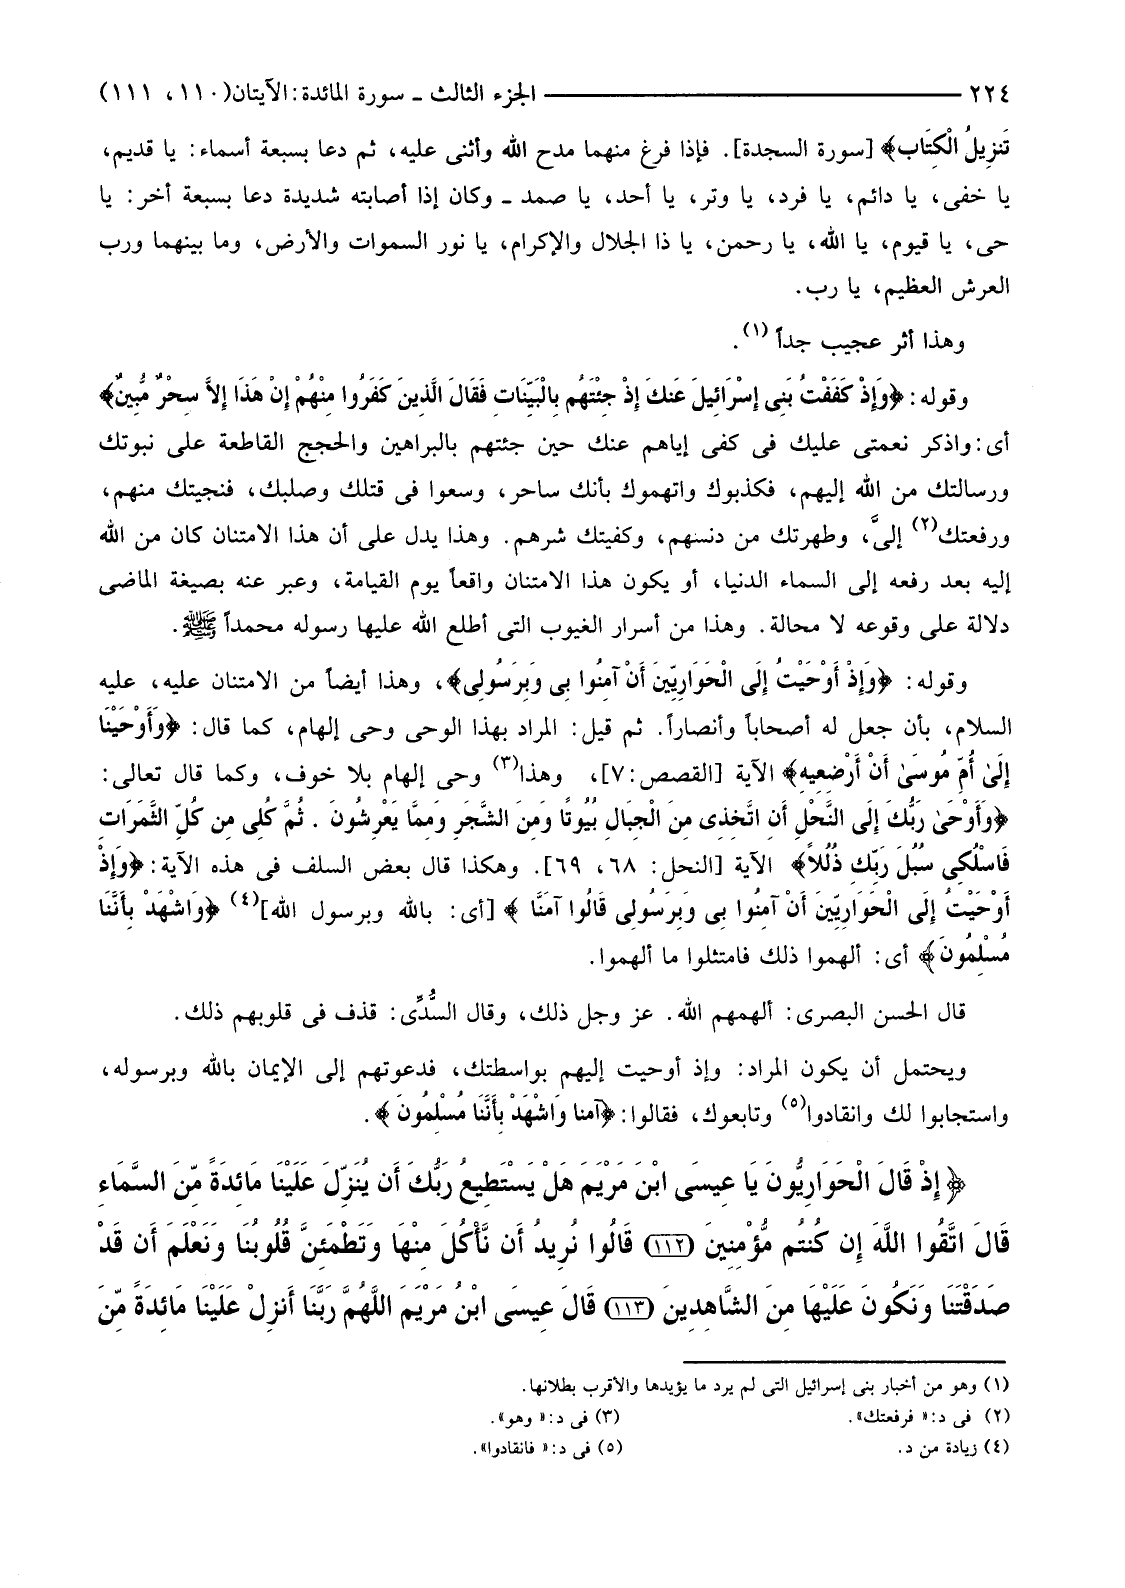 ٢٢٤ ــــــــــــ الجزء الثالث ـ سورة المائدة: الآيتان(١١٠، ١١١)
تَنزِيلُ الْكِتَاب﴾ [سورة السجدة]. فإذا فرغ منهما مدح الله وأثنى عليه، ثم دعا بسبعة أسماء: يا قديم،
يا خفى، يا دائم، يا فرد، يا وتر، يا أحد، يا صمد ـ وكان إذا أصابته شديدة دعا بسبعة أخر: يا
حى، يا قيوم، يا الله، يا رحمن، يا ذا الجلال والإكرام، يا نور السموات والأرض، وما بينهما ورب
العرش العظيم، يا رب.
وهذا أثر عجيب جداً (١).
وقوله: ﴿وَإِذْ كَفَفْتُ بَنِى إِسْرَائِيلَ عَنكَ إِذْ جِئْتَهُم بِالْبَيِّنَاتِ فَقَالَ الَّذِينَ كَفَرُوا مِنْهُمْ إِنْ هَذَا إِلاَّ سِحْرٌ مُّبِينٌ﴾
أى: واذكر نعمتى عليك فى كفى إياهم عنك حين جئتهم بالبراهين والحجج القاطعة على نبوتك
ورسالتك من الله إليهم، فكذبوك واتهموك بأنك ساحر، وسعوا فى قتلك وصلبك، فنجيتك منهم،
ورفعتك(٢) إلىَّ، وطهرتك من دنسهم، وكفيتك شرهم. وهذا يدل على أن هذا الامتنان كان من الله
إليه بعد رفعه إلى السماء الدنيا، أو يكون هذا الامتنان واقعاً يوم القيامة، وعبر عنه بصيغة الماضى
دلالة على وقوعه لا محالة. وهذا من أسرار الغيوب التى أطلع الله عليها رسوله محمداً ﷺ.
وقوله: ﴿وَإِذْ أَوْحَيْتُ إِلَى الْحَوَارِيِّينَ أَنْ آمِنُوا بِى وَبِرَسُولِى﴾، وهذا أيضاً من الامتنان عليه، عليه
السلام، بأن جعل له أصحاباً وأنصاراً. ثم قيل: المراد بهذا الوحى وحى إلهام، كما قال: ﴿وَأَوْحَيْنَا
إِلَىٰ أُمِّ مُوسَىٰ أَنْ أَرْضِعِيهِ﴾ الآية [القصص:٧]، وهذا(٣) وحى إلهام بلا خوف، وكما قال تعالى:
﴿وَأَوْحَىٰ رَبُّكَ إِلَى النَّحْلِ أَنِ اتَّخِذِى مِنَ الْجِبَالِ بُيُوتًا وَمِنَ الشَّجَرِ وَمِمَّا يَعْرِشُونَ . ثُمَّ كُلِى مِن كُلِّ الثَّمَرَاتِ
فَاسْلُكِى سُبُلَ رَبِّكِ ذُلُلاً﴾ الآية [النحل: ٦٨، ٦٩]. وهكذا قال بعض السلف فى هذه الآية: ﴿وَإِذْ
أَوْحَيْتُ إِلَى الْحَوَارِيِّينَ أَنْ آمِنُوا بِى وَبِرَسُولِى قَالُوا آمَنَّا ﴾ [أى: بالله وبرسول الله](٤) ﴿وَاشْهَدْ بِأَنَّنَا
مُسْلِمُونَ﴾ أى: ألهموا ذلك فامتثلوا ما ألهموا.
قال الحسن البصرى: ألهمهم الله. عز وجل ذلك، وقال السُّدِّى: قذف فى قلوبهم ذلك.
ويحتمل أن يكون المراد: وإذ أوحيت إليهم بواسطتك، فدعوتهم إلى الإيمان بالله وبرسوله،
واستجابوا لك وانقادوا(٥) وتابعوك، فقالوا: ﴿آمنا وَاشْهَدْ بِأَنَّنَا مُسْلِمُونَ ﴾.
﴿ إِذْ قَالَ الْحَوَارِيُّونَ يَا عِيسَى ابْنَ مَرْيَمَ هَلْ يَسْتَطِيعُ رَبُّكَ أَن يُنَزِّلَ عَلَيْنَا مَائِدَةً مِّنَ السَّمَاءِ
قَالَ اتَّقُوا اللَّهَ إِن كُنتُم مُّؤْمِنِينَ (١١٢) قَالُوا نُرِيدُ أَن نَّأْكُلَ مِنْهَا وَتَطْمَئِنَّ قُلُوبُنَا وَنَعْلَمَ أَن قَدْ
صَدَقْتَنَا وَنَكُونَ عَلَيْهَا مِنَ الشَّاهِدِينَ (١١٣) قَالَ عِيسَى ابْنُ مَرْيَمَ اللَّهُمَّ رَبَّنَا أَنزِلْ عَلَيْنَا مَائِدَةً مِّنَ
(١) وهو من أخبار بنى إسرائيل التى لم يرد ما يؤيدها والأقرب بطلانها.
(٢) فى د: « فرفعتك». (٣) فى د: « وهو».
(٤) زيادة من د. (٥) فى د: « فانقادوا».